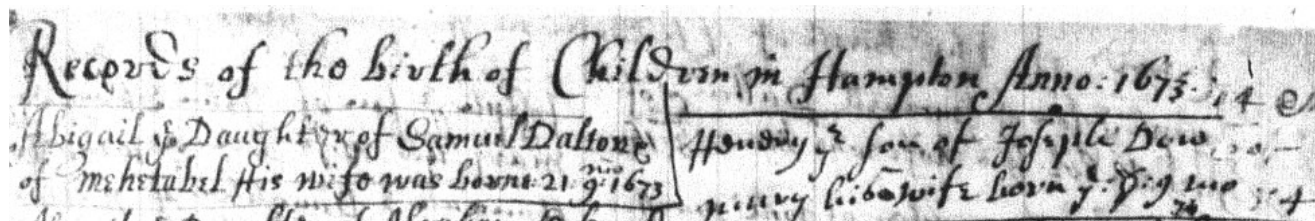 Records of the birth of Children in Hampton Anno: 1673: 4
Abigail ye Daughter of Samuel Dalton &
of mehetabel His wife was borne: 21: 9mo: 1673
Henery ye son of Joseph Dow
mary his wife born ye: 9 mo 74